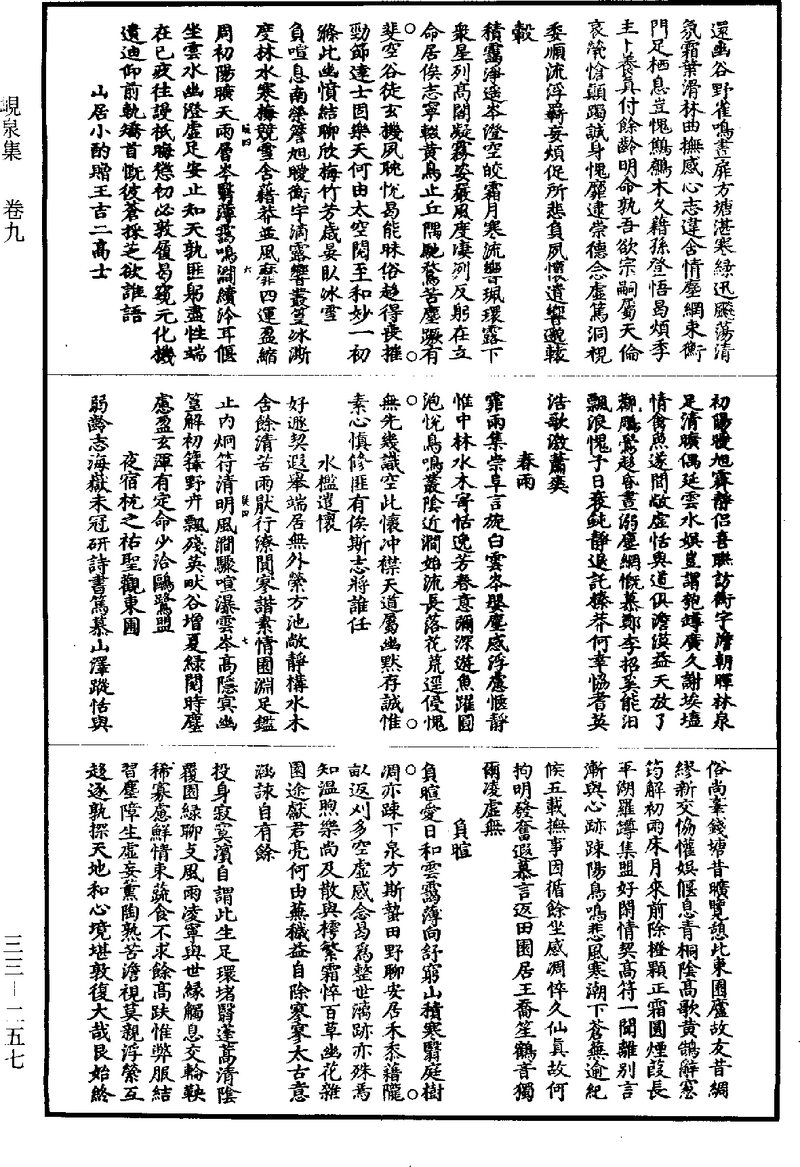 還幽谷野雀鳴晝扉方塘湛寒綠迅飈蕩清
氛霜葉滑林曲撫感心志違含情塵網束衡
門足栖息豈愧鷦鷯木久藉孫登悟曷煩季
主卜養真付餘齡明命孰吾欲宗嗣屬天倫
哀煢愴顛躅誠身愧靡逮崇德念虛篤洞視
委順流浮羈妄煩促所悲負夙懷遺響邈轅
轂
積靄淨遙岑澄空皎霜月寒流響珮環露下
衆星列高閣凝霧姿嚴風度凄冽反躬在立
命居俟志寧輟黃鳥止丘隅馳騖苦塵蹶有
斐空谷徒玄機夙耽悅曷能昧俗趨得喪摧
勁節達士固樂天何由太空閱至和妙一初
滌此幽憤結聊欣梅竹芳歲晏臥冰雪
負暄息南榮簷旭曖衡宇滴露響叢篁冰澌
度林水寒梅競雪含藉莽並風靡四運盈縮
周初陽曠天雨層岑翳薄靄鳴澗續泠耳偃
坐雲水幽澄虛足安止知天孰匪躬盡性端
在已疲往謾祇晦愆初必敦履曷窺元化機
遺迪仰前軌矯首慨彼蒼採芝欲誰語
山居小酌贈王古二高士
初陽曖旭霽靜侶喜聯訪衡宇澹朝暉林泉
足清曠偶延雲水娛豈謂匏罇廣久謝埃壒
情禽魚遂閒敞虛恬與道俱澹漠益天放了
觀鵬鷃趨昏晝溺塵網慨慕鄭李招奚能汨
飄浪愧予日衰鈍靜退託榛莽何幸恊耆英
浩歌激蕭爽
春雨
霏雨集崇阜言旋白雲岑嬰塵感浮慮愜靜
惟中林水木寄恬逸芳春意彌深遊魚躍圓
池悅鳥鳴叢陰近澗始流長落花荒逕侵愧
無先幾識空此懷冲襟天道屬幽默存誠惟
素心慎修匪有俟斯志將誰任
水檻遣懷
好遯契遐舉端居無外縈方池敞靜構水木
含餘清苦雨猒行潦閒寥諧素情囿淵足鑑
止內炯符清明風澗驟喧瀑雲岑高隱㝠幽
篁解初籜野卉飄殘英畎谷增夏綠閱時塵
慮盈玄渾有定命少洽鷗鷺盟
夜宿枕之祐聖觀東圃
弱齡志海嶽未冠研詩書篤慕山澤蹤恬與
俗尚䇿錢塘昔曠覽憩此東圃廬故友昔綢
繆新交恊懽娛偃息青桐陰高歌黃鵠辭窓
筠解初雨床月來前除橙顆正霜圓煙葭長
平湖羅罇集盟好閑情契高符一聞離別言
漸與心跡踈陽鳥鳴悲風寒潮下蒼蕪逾紀
候五載撫事因循餘坐感凋悴久仙真故何
拘明發奮遐慕言返田園居王喬笙鶴音獨
爾凌虛無
負暄
負暄愛日和雲靄薄向舒窮山積寒翳庭樹
凋亦踈下泉方斯蟄田野聊安居禾黍藉隴
畝返刈多空虛感念曷爲整世鴻跡亦殊焉
知溫煦樂尚及散與樗繁霜悴百草幽花雜
園途獻君亮何由蕪穢益自除寥寥太古意
涵詠自有餘
投身寂寞濱自謂此生足環堵翳蓬蒿清陰
覆園綠聊攴風雨凌寧與世緣觸息交輪鞅
稀寡慮鮮情束蔬食不求餘高趺惟弊服結
習塵障生虛妄薰陶熟苦澹視莫親浮縈互
趨逐孰探天地和心境堪敦復大哉艮始終
峴泉集　卷九
三三—二五七